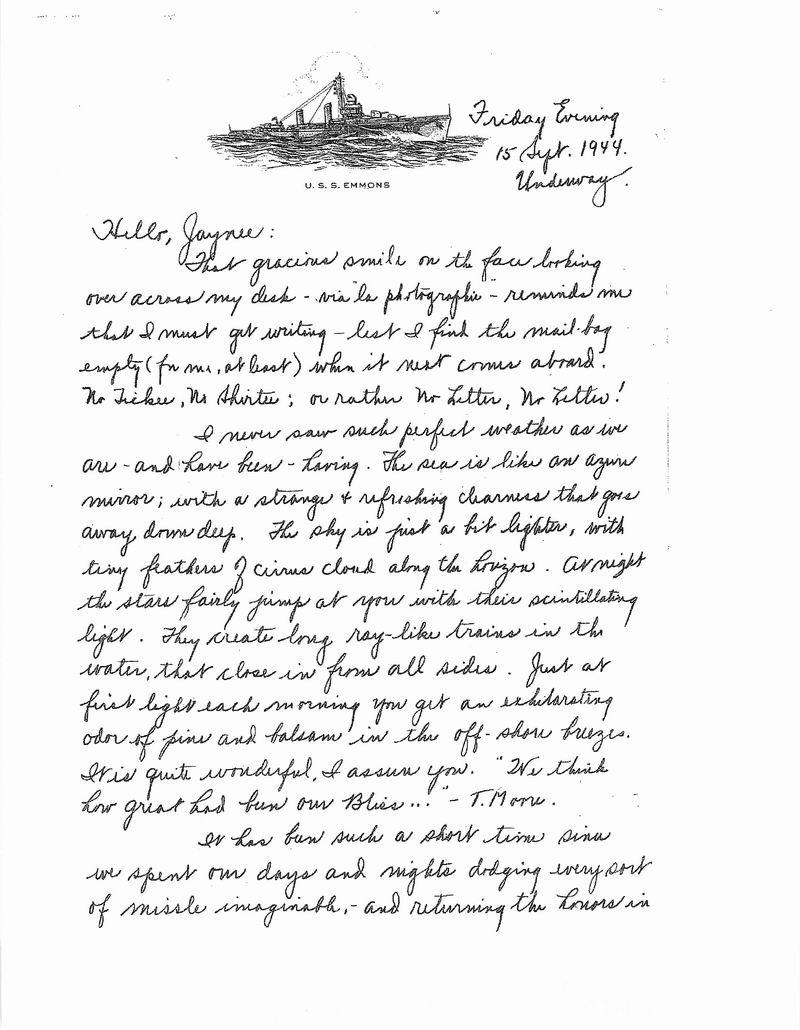 Friday Evening
15 Sept. 1944.
Underway.
U. S. S. EMMONS
Hello, Jaynee:
That gracious smile on the face looking
over across my desk - via "la photographie" - reminds me
that I must get writing - lest I find the mail-bag
empty (for me, at least) when it next comes aboard.
No Tickee, No Shirtee; or rather No Letter, No Letter!
I never saw such perfect weather as we
are - and have been - having. The sea is like an azure
mirror; with a strange & refreshing clearness that goes
away down deep. The sky is just a bit lighter, with
tiny feathers of cirrus cloud along the horizon. At night
the stars fairly jump at you with their scintillating
light. They create long ray-like trains in the
water, that close in from all sides. Just at
first light each morning you get an exhilarating
odor of pine and balsam in the off-shore breezes.
It is quite wonderful, I assure you. "We think
how great had been our Bliss..." - T. Moore.
It has been such a short time since
we spent our days and nights dodging every sort
of missle imaginable, - and returning the honors in